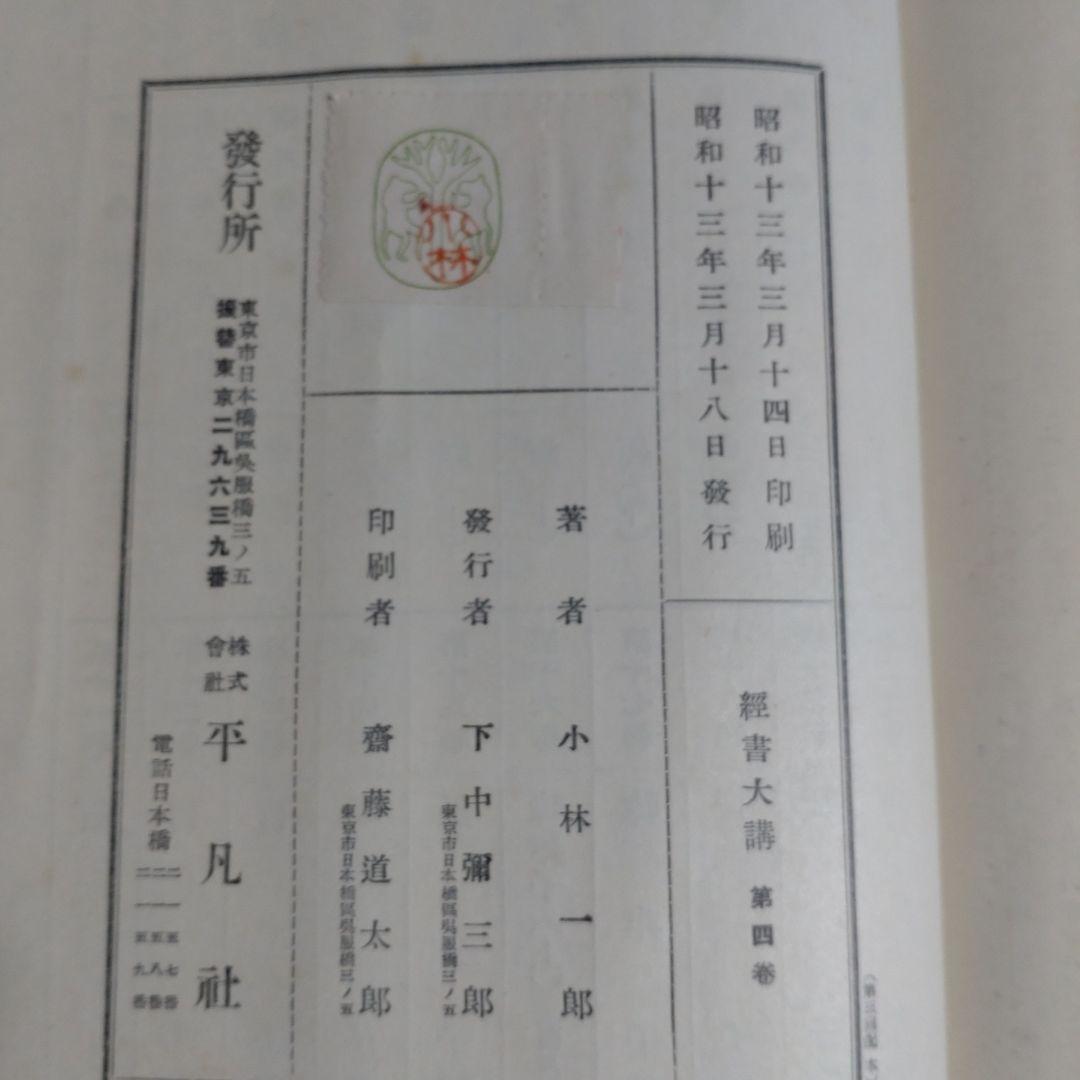 昭和十三年三月十四日印刷
昭和十三年三月十八日發行
經書大講 第四卷
小林
著者 小林一郎
發行者 下中彌三郎
東京市日本橋區吳服橋三ノ五
印刷者 齋藤道太郎
東京市日本橋區吳服橋三ノ五
發行所
東京市日本橋區吳服橋三ノ五
振替東京二九六三九番
株式會社 平凡社
電話日本橋